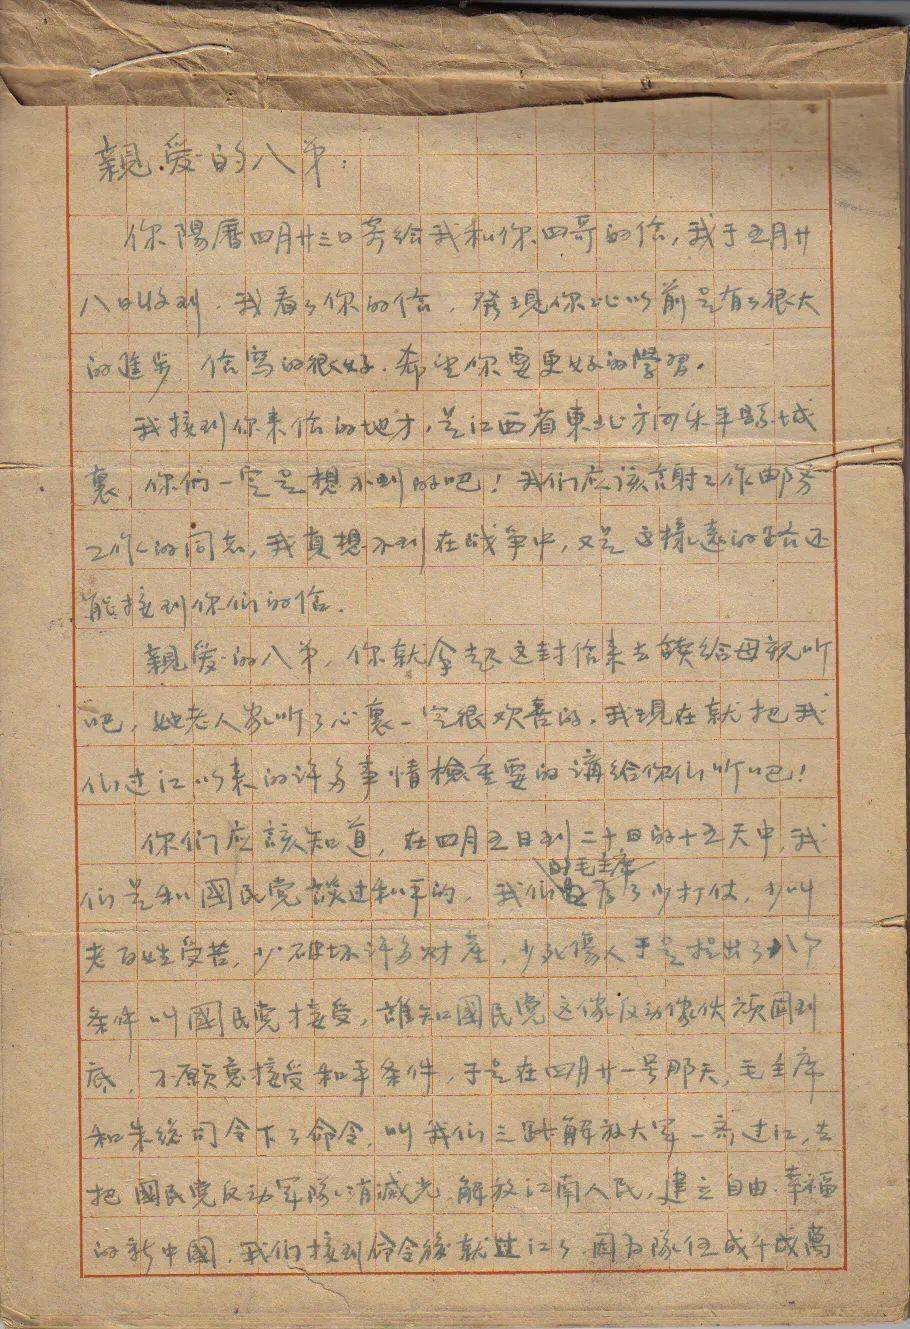 親愛的八弟：
你陽曆四月廿三日寄給我和你四哥的信，我于五月廿
八日收到．我看了你的信，發現你比以前是有了很大
的進步 信寫的很好．希望你要更好的學習。
我接到你来信的地方，是江西省東北方向乐平縣城
裏，你们一定是想不到的吧！我们应該謝工作邮务
工作的同志，我真想不到在战争中，又是这樣遠的路还
能接到你们的信．
親愛的八弟，你就拿起这封信来去读給母親听
吧，她老人家听了心裏一定很欢喜的．我現在就把我
们过江以来的许多事情檢重要的講給你们听吧！
你们应該知道，在四月五日到二十日的十五天中，我
们是和國民党談过和平的．我们的毛主席为了少打仗，少叫
老百姓受苦，少破坏许多財產，少死傷人于是提出了八个
条件叫國民党接受，誰知國民党这伙反动傢伙頑固到
底，不願意接受和平条件，于是在四月廿一号那天，毛主席
和朱總司令下了命令，叫我们三路解放大軍一齐过江，去
把國民党反动軍隊消滅光．解放江南人民，建立自由．幸福
的新中國．我们接到命令後就过江了．因为隊伍成千成萬